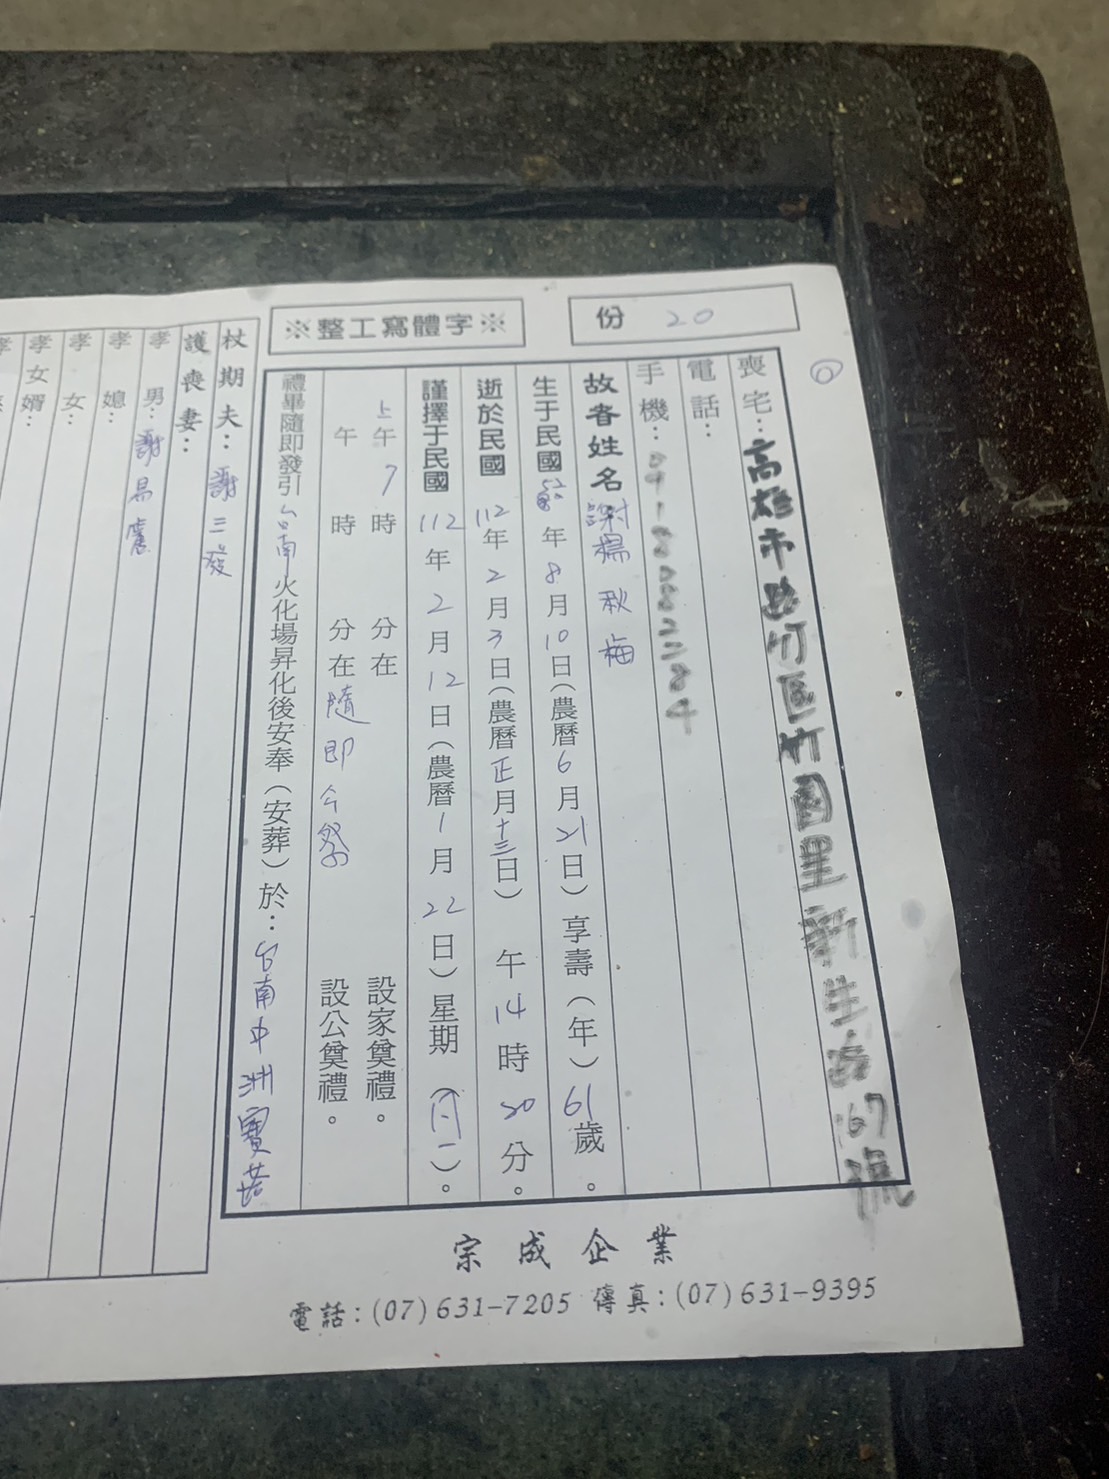 份 20
※整工寫體字※
喪宅：高雄市路竹區竹園里新生路67號
電話：
手機：
故者姓名 謝楊秋梅
生于民國 年8月10日(農曆6月21日)享壽(年)61歲。
逝於民國112年2月3日(農曆正月十三日) 午14時 分。
謹擇于民國112年2月12日(農曆1月22日)星期(日)。
上午7時 分在 設家奠禮。
午 時 分在隨即公祭 設公奠禮。
禮畢隨即發引台南火化場昇化後安奉(安葬)於：台南中洲寶塔
杖期夫：謝三發
護喪妻：
孝男：謝昌
孝媳：
孝女：
孝女婿：
宗成企業
電話：(07)631-7205 傳真：(07)631-9395